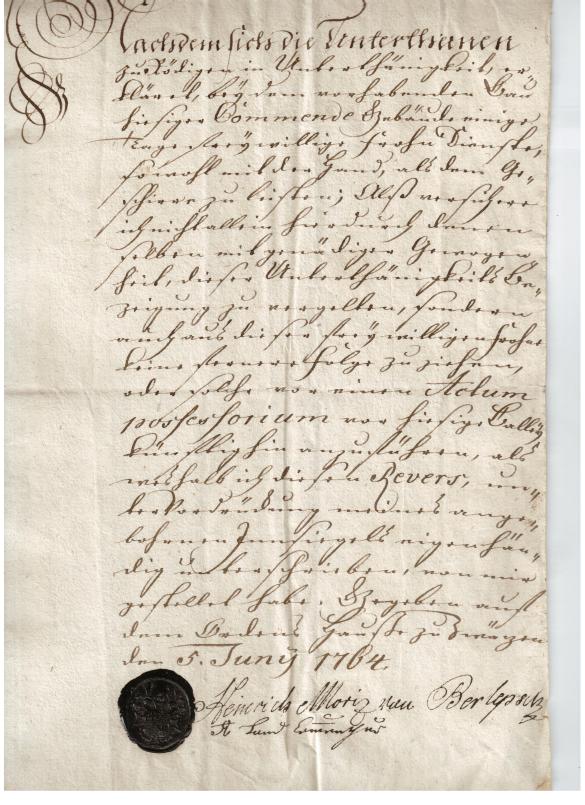 Nachdem sich die Unterthanen
zu Rödigen in Unterthänigkeit, er-
kläret, bey dem vorhabenden Bau
hiesiger Commende Gebäude einige
Tage freywillige Frohn Dienste,
sowohl mit der Hand, als dem Ge-
schirre zu leisten; Alß versichere
ich nicht allein hierdurch denen
selben mit gnädiger Gewogen
heit, dieser Unterthänigkeits Be-
zeigung zu vergelten, sondern
auch aus dieser freywilligen Frohne
keine fernere Folge zu ziehen,
oder solche vor einen Actum
possessorium vor hiesige Balley
künftighin anzuführen, als
weshalb ich diesen Revers, un-
ter Vordrückung meines ange-
bohrnen Innsiegels eigenhän-
dig unterschrieben, von mir
gestellet habe. Gegeben auf
dem Ordens Hauße zu Zwäzen
den 5. Juny 1764.
Heinrich Moriz von Berlepsch
Land Commenthur